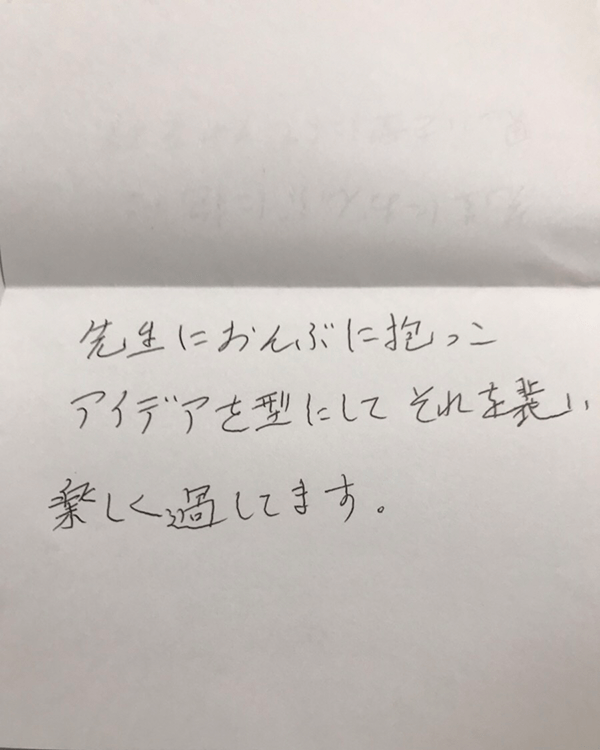 先生におんぶに抱っこ
アイデアを型にして それを装い
楽しく過してます。